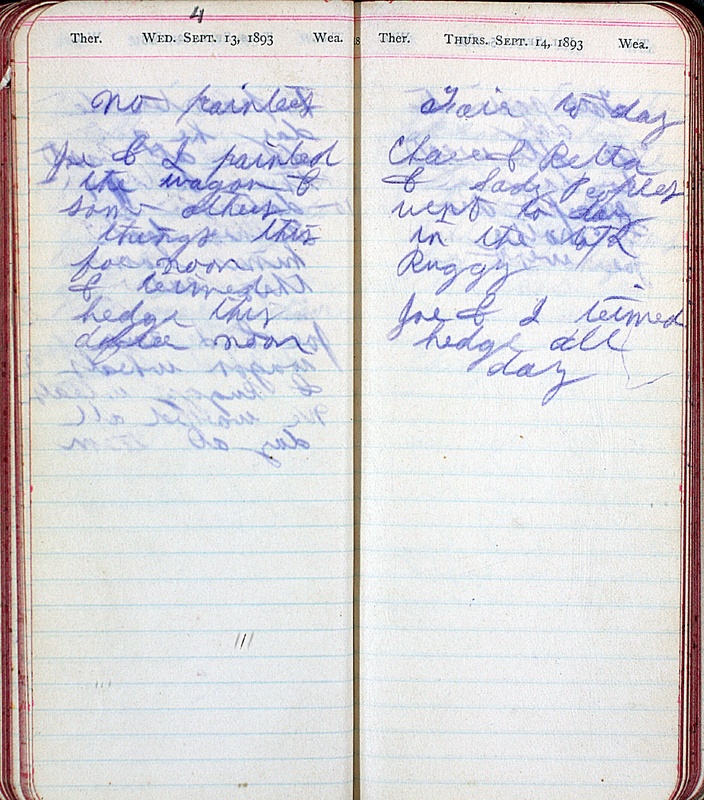 4
Ther. WED. SEPT. 13, 1893 Wea.
no painted
Joe & I painted
the wagon &
som others
things this
foor noon
& terimed
hedge this
after noon
Ther. THURS. SEPT. 14, 1893 Wea.
Fair to day
& Retta
& Sady Peoples
went to day
in the
Buggy
Joe & I terimed
hedge all
day